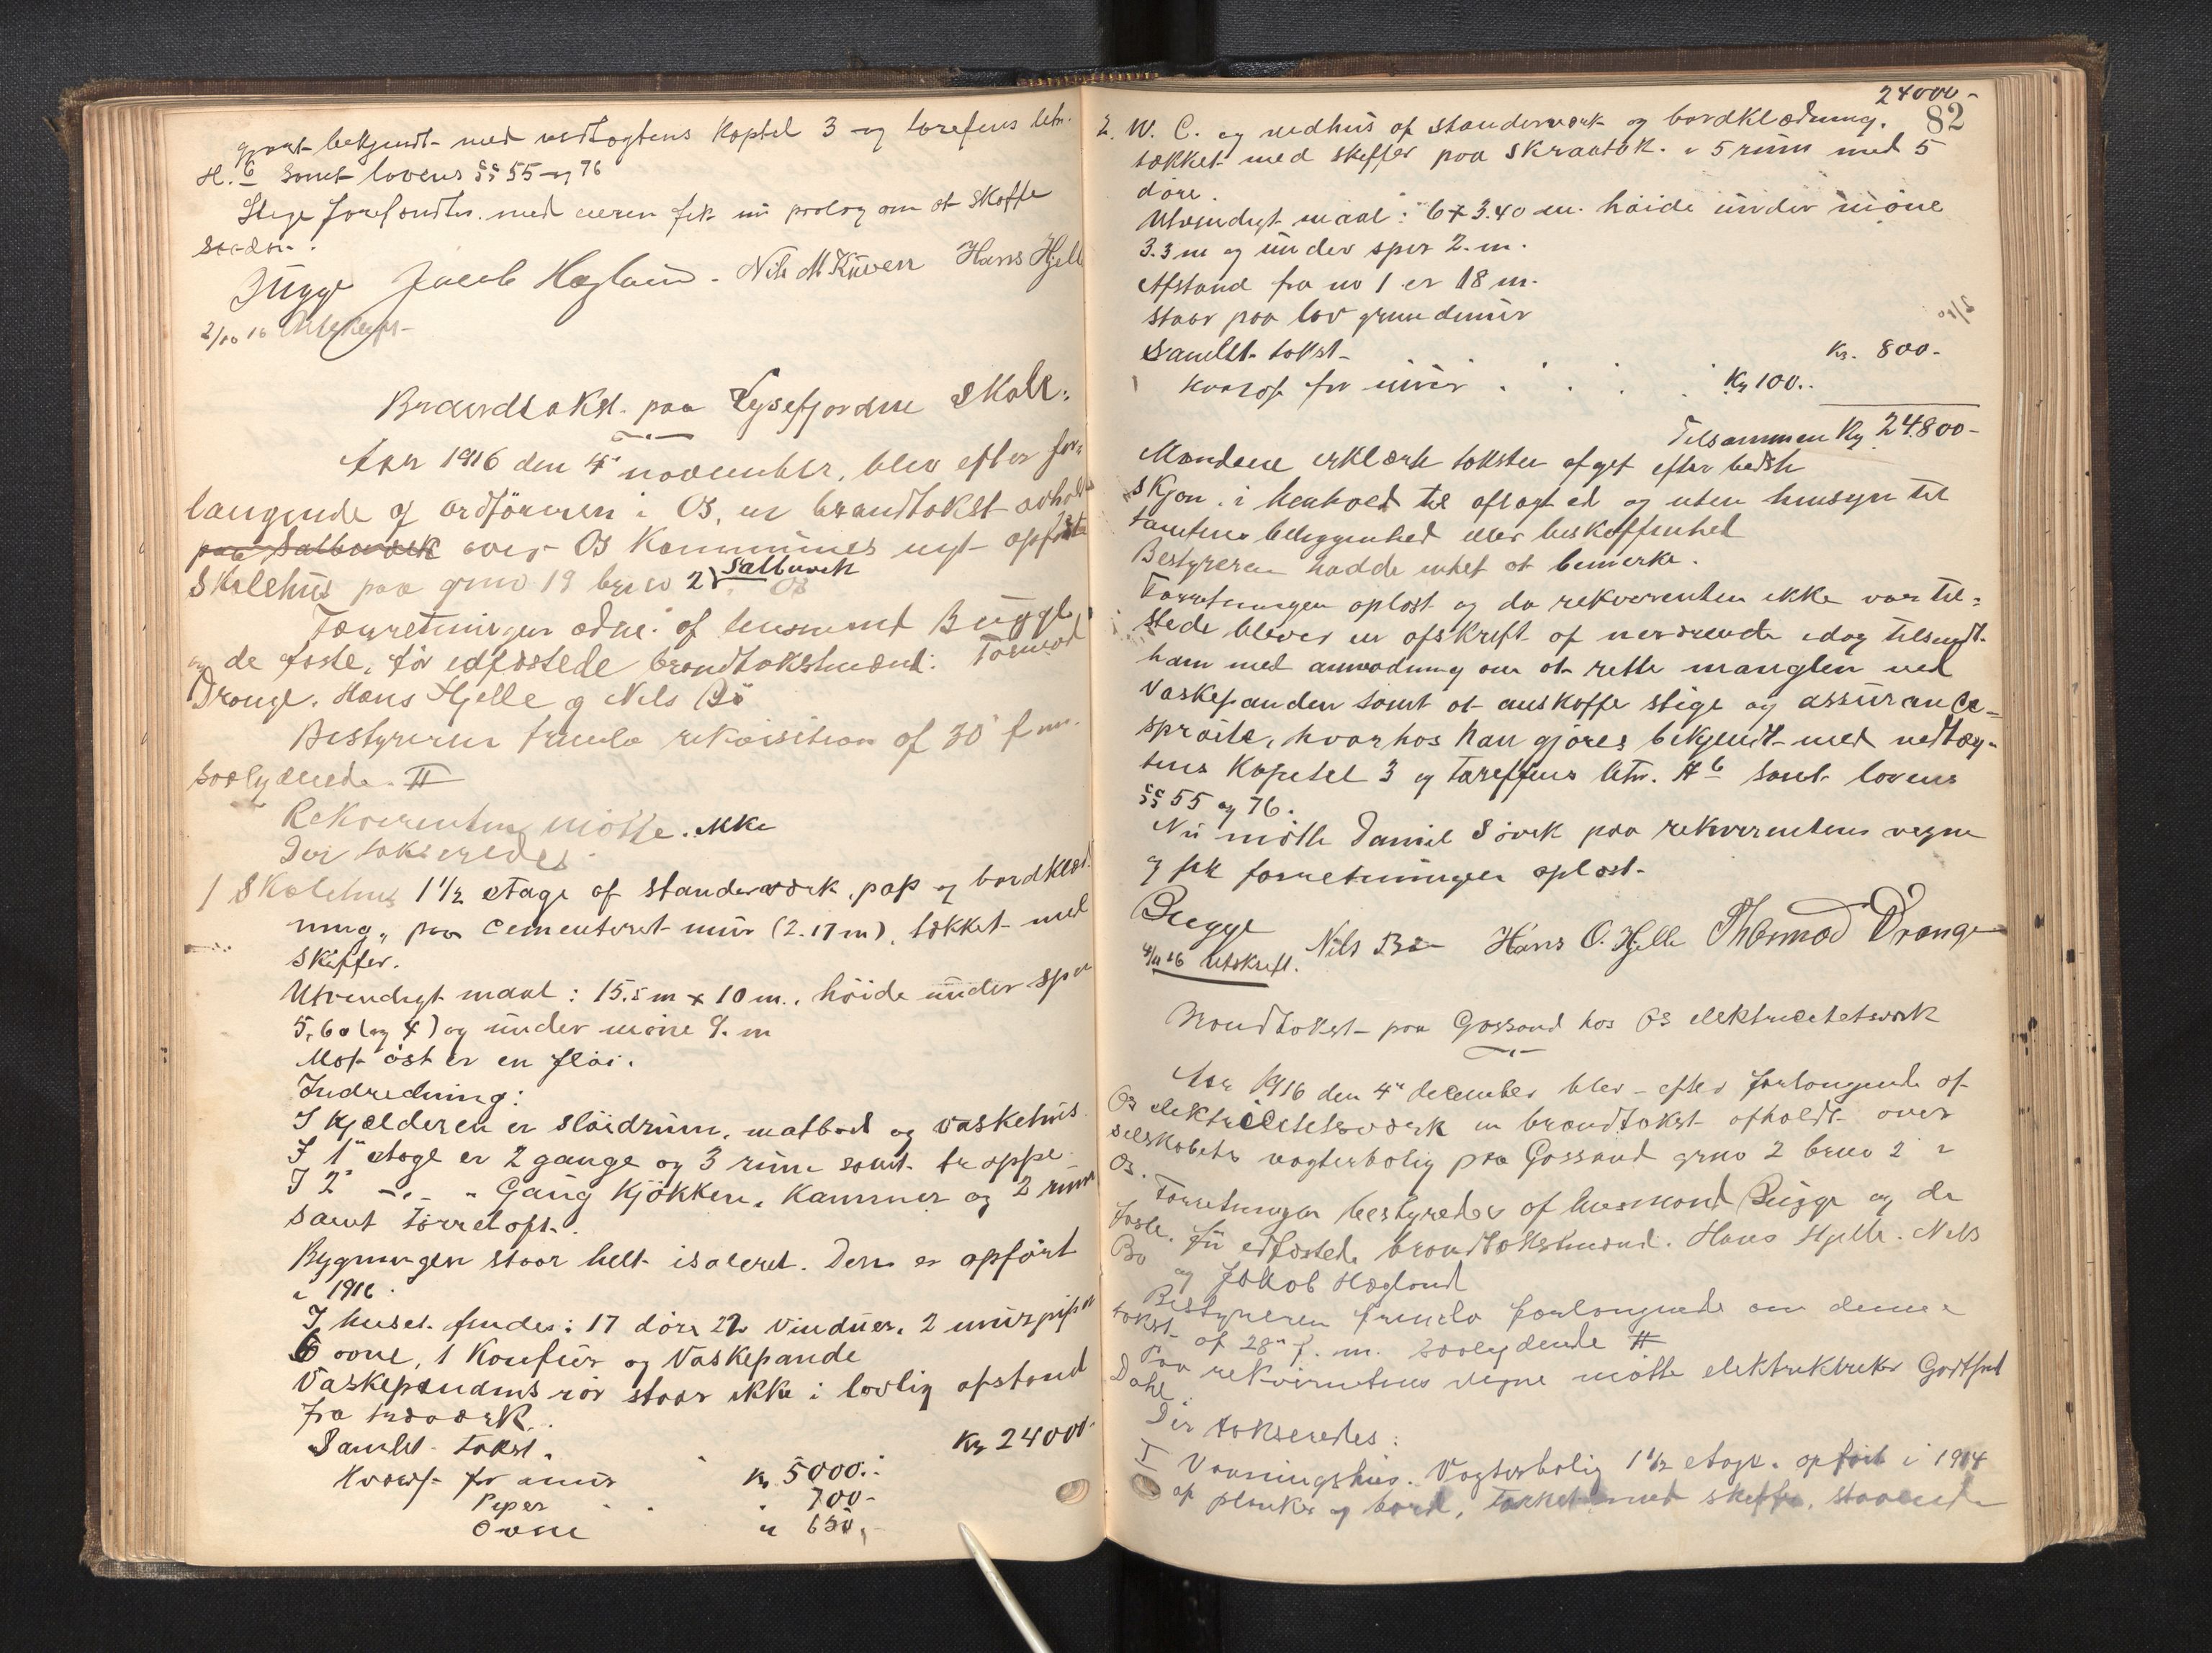 gjort bekjendt med vedtægtens kaptel 3 og tareffens litr.
H. 6 samt lovens §§ 55 og 76
Stige forefandtes. med eieren fik nu paalæg om at skaffe
saadan.
Bugge Jacob Haglund. Nils M Kuven Hans Hjelle
2/10 16 Utskrift

Brandtakst paa Lysefjordens skole.
Aar 1916 den 4de november, blev efter for-
langende af ordføreren i Os, en brandtakst avholdt
paa Salbuvik over Os Kommunes nyt opførte
Salbuvik
Skolehus paa grno 19 brno 2 i Os
Forretningen adm. af lensmand Bugge
og de faste, før edfæstede brandtakstmænd: Tormod
Drange. Hans Hjelle og Nils Bö
Bestyreren fremla rekvisition af 30 f m.
saalydende. #
Rekvirenten mötte ikke
Der takseredes
1 Skolehus 1 1/2 etage af standerværk, pap og bordklæd-
ning, paa cementeret mur (2.17 m), tækket med
skiffer.
Utvendigt maal: 15.5 m x 10 m., höide under sper
5,60 (og 4) og under möne 9. m
Mot öst er en flöi.
Indredning:
I kjælderen er slöidrum, matbod og vaskehus
I 1ste etage er 2 gange og 3 rum samt trappe
I 2 -"- " Gang kjökken, kammer og 2 rum
samt törreloft.
Bygningen staar helt isoleret. Den er opfört
i 1916.
I huset findes: 17 döre 22 vinduer, 2 murpiper
6 ovne, 1 Komfur og Vaskepande
Vaskepandens rör staar ikke i lovlig afstand
fra træværk.
Samlet takst. Kr 24000.
Hvoraf for mur Kr. 5000.
Piper " 700-
Ovne " 650,-

24000-
82
2. W. C. og vedhus af standerværk og bordklædning.
tækket med skiffer paa skraatak. i 5 rum med 5
döre.
Utvendigt maal: 6 x 3.40 m. höide under möne
3.3 m og under sper 2. m.
Afstand fra no 1 er 18 m.
staar paa lav grundmur
Samlet takst Kr. 800-
hvoraf for mur . . . Kr 100..
Tilsammen Kr 24.800-
Mændene erklærte taksten afgit efter bedste
skjön i henhold til aflagt ed og uten hensyn til
tomtens beliggenhed eller beskaffenhet
Bestyreren hadde intet at bemerke.
Forretningen oplæst og da rekvirenten ikke var til-
stede blever en afskrift af nærværende idag tilsendt
ham med anmodning om at rette manglen ved
Vaskepanden samt at anskaffe stige og assurance-
spröite, hvorhos han gjöres bekjendt med vedtæg-
tens kapitel 3 og tareffens litr. H 6 samt lovens
§§ 55 og 76.
Nu mötte Daniel Sövik paa rekvirentens vegne
og fik forretningen oplæst.
Bugge Nils Bö Hans O. Hjelle Thormod Drange
4/11 16 Utskrift.

Brandtakst paa Gåssand hos Os elektricitetsverk
Aar 1916 den 4de december blev efter forlangende af
Os elektricitetsværk en brandtakst afholdt over
selskabets vogterbolig paa Gåssand grno 2 brno 2 i
Os.
Forretningen bestyredes af lensmand Bugge og de
faste, før edfæstede brandtakstmænd. Hans Hjelle. Nils
Bö og Jakob Haglund
Bestyreren fremla forlangende om denne
takst af 28de f. m. saalydende #
Paa rekvirentens vegne mötte elektriker Godtfred
Dahl
Der takseredes:
I Vaaningshus. Vogterbolig 1 1/2 etage. opfört i 1914
af planker og bord, tækket med skiffer, staaende